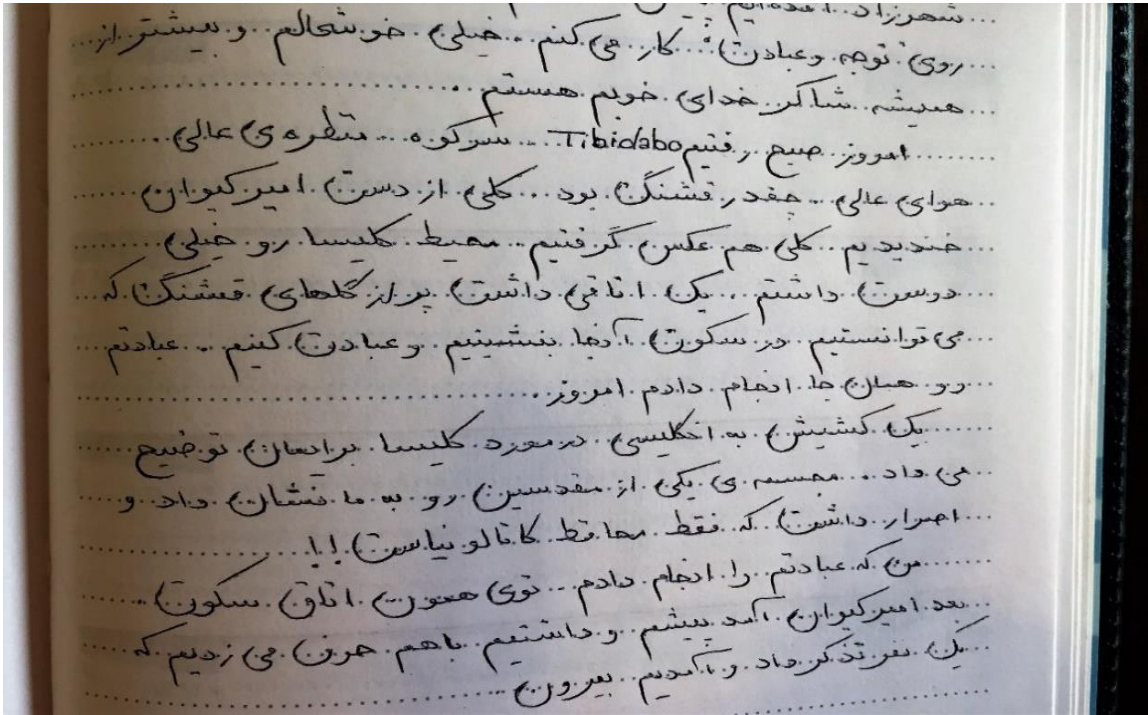 شهرزاد آمده‌ایم
روی توجه و عبادت کار می کنم .. خیلی خوشحالم و بیشتر از
همیشه شاکر خدای خوبم هستم
امروز صبح رفتیم Tibidabo ... سر کوه .. منظره ی عالی
هوای عالی .. چقدر قشنگ بود ... کلی از دست امیرکیوان
خندیدیم .. کلی هم عکس گرفتیم .. محیط کلیسا رو خیلی
دوست داشتم ... یک اتاقی داشت پر از گلهای قشنگ که
می توانستیم در سکوت آنجا بنشینیم و عبادت کنیم .. عبادتم
رو همان جا انجام دادم امروز
یک کشیش به انگلیسی در مورد کلیسا برایمان توضیح
می داد .. مجسمه ی یکی از مقدسین رو به ما نشان داد و
اصرار داشت که فقط محافظ کاتالونیاست !!
من که عبادتم را انجام دادم ... توی همون اتاق سکوت
بعد امیرکیوان آمد پیشم و داشتیم باهم حرف می زدیم که
یک نفر تذکر داد و آمدیم بیرون